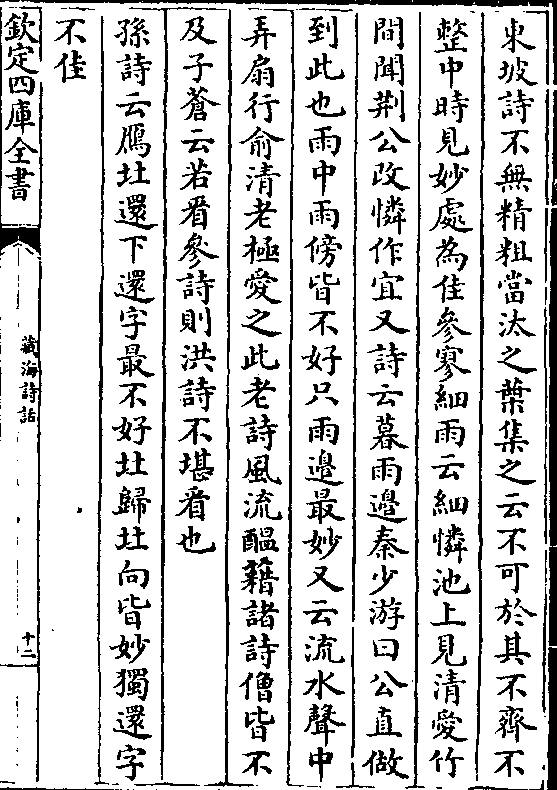 東坡詩不無精粗當汰之葉集之云不可於其不齊不
整中時見妙處為佳參寥細雨云細憐池上見清愛竹
間聞荆公改憐作宜又詩云暮雨邊秦少游曰公直做
到此也雨中雨傍皆不好只雨邉最妙又云流水聲中
弄扇行俞清老極愛之此老詩風流醖藉諸詩僧皆不
及子蒼云若看參詩則洪詩不堪看也
孫詩云鴈北還下還字最不好北歸北向皆妙獨還字
不佳
欽定四庫全書
藏海詩話
十二